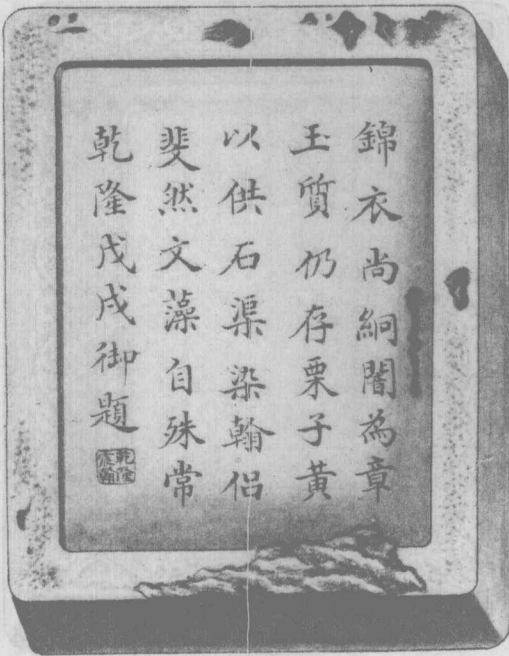 錦衣尚絅闇為章
玉質仍存栗子黃
以供石渠染翰侶
斐然文藻自殊常
乾隆戊戌御題
乾隆宸翰